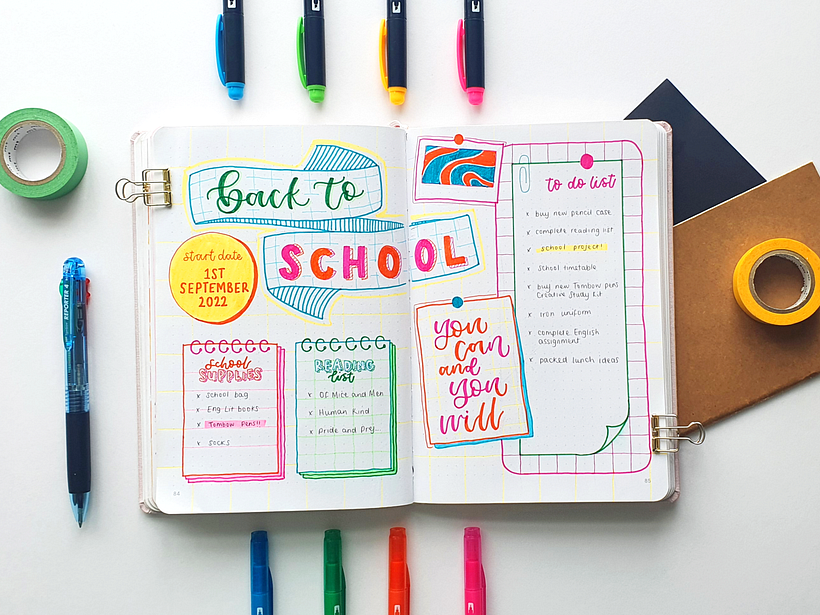 back to
SCHOOL
start date
1ST
SEPTEMBER
2022
School
SUPPLIES
x school bag
x Eng Lit books
x Tombow Pens!!
x socks
READING
list
x Of Mice and Men
x Human Kind
x Pride and Prej...
you
can
and
you
will
to do list
x buy new pencil case
x complete reading list
x school project!
x school timstable
x buy new Tombow pens
Creative Study Kit
x iron uniform
x complete English
assignment
x packed lunch ideas
84
85
REPORTER 4